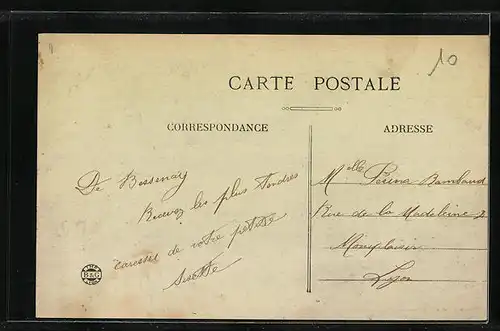 10
CARTE POSTALE
CORRESPONDANCE
ADRESSE
De Bessenay
Recevez les plus tendres
caresses de votre petite
Melle Périna Rambaud
Rue de la Madeleine 7
Monplaisir
Lyon
B&G